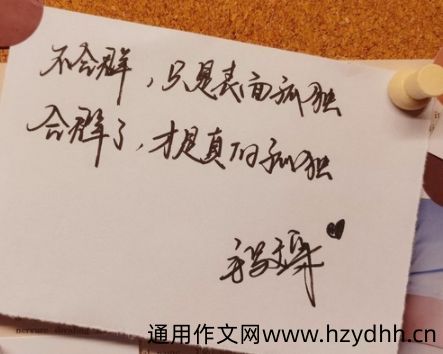 不合群，只是表面孤独
合群了，才是真的孤独
通用作文网www.hzydhh.cn